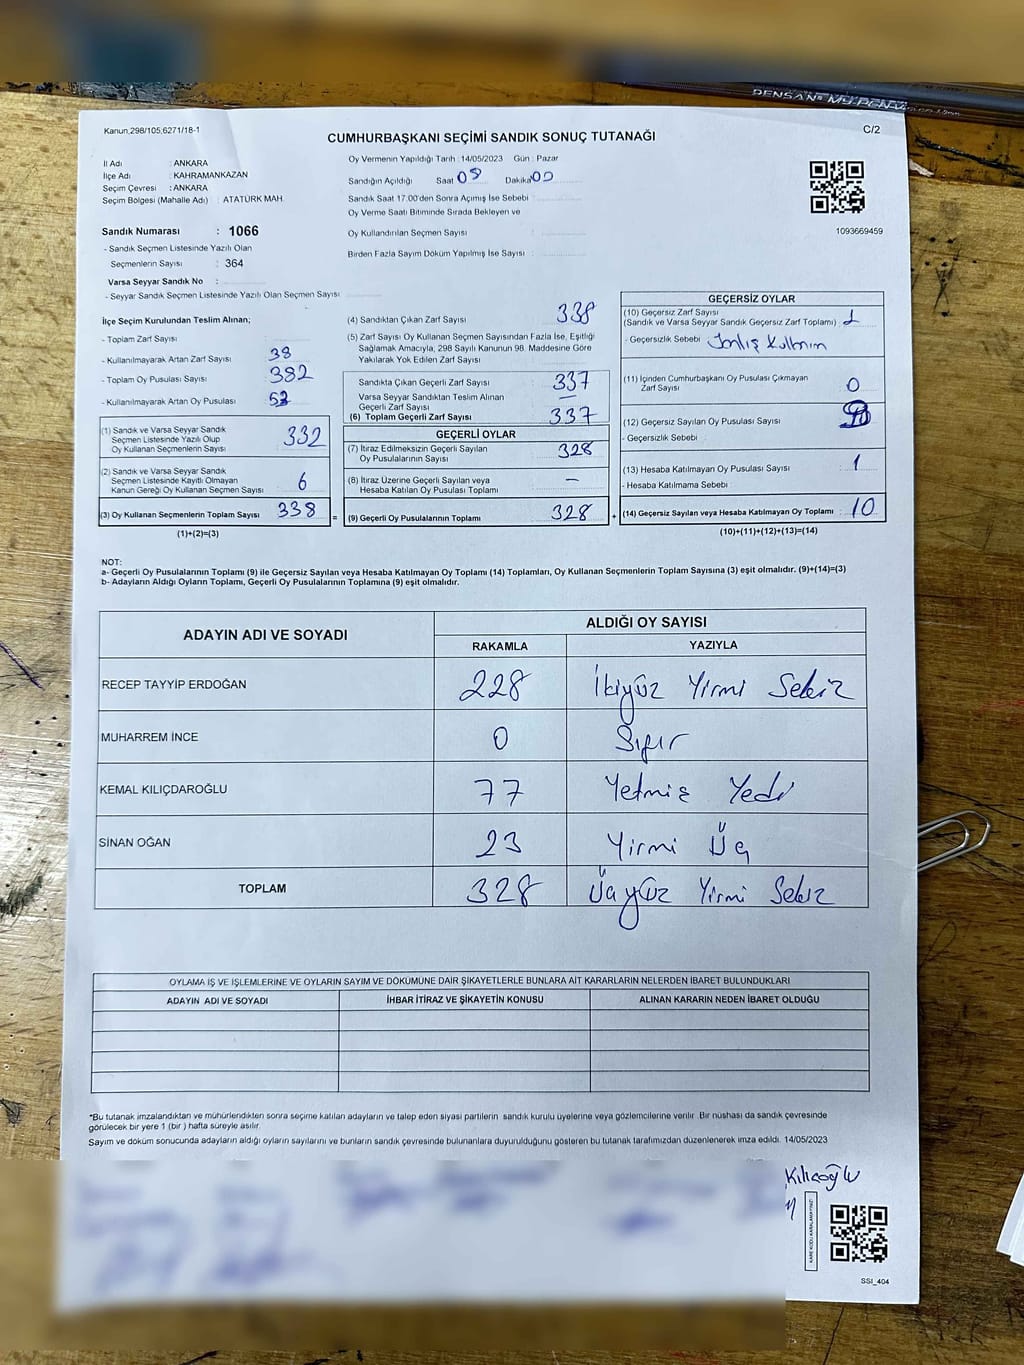 PENSAN® MY-PEN
Kanun,298/105,6271/18-1
CUMHURBAŞKANI SEÇİMİ SANDIK SONUÇ TUTANAĞI
C/2
İl Adı : ANKARA
İlçe Adı : KAHRAMANKAZAN
Seçim Çevresi : ANKARA
Seçim Bölgesi (Mahalle Adı) : ATATÜRK MAH.
Oy Vermenin Yapıldığı Tarih : 14/05/2023 Gün : Pazar
Sandığın Açıldığı Saat 08 Dakika 00
Sandık Saat 17.00'den Sonra Açımış İse Sebebi :
Oy Verme Saati Bitiminde Sırada Bekleyen ve
Oy Kullandırılan Seçmen Sayısı :
Birden Fazla Sayım Döküm Yapılmış İse Sayısı :
1093669459
Sandık Numarası : 1066
- Sandık Seçmen Listesinde Yazılı Olan
Seçmenlerin Sayısı : 364
Varsa Seyyar Sandık No :
- Seyyar Sandık Seçmen Listesinde Yazılı Olan Seçmen Sayısı
İlçe Seçim Kurulundan Teslim Alınan;
- Toplam Zarf Sayısı :
- Kullanılmayarak Artan Zarf Sayısı : 38
- Toplam Oy Pusulası Sayısı : 382
- Kullanılmayarak Artan Oy Pusulası :
(1) Sandık ve Varsa Seyyar Sandık
Seçmen Listesinde Yazılı Olup
Oy Kullanan Seçmenlerin Sayısı : 332
(2) Sandık ve Varsa Seyyar Sandık
Seçmen Listesinde Kayıtlı Olmayan
Kanun Gereği Oy Kullanan Seçmen Sayısı : 6
(3) Oy Kullanan Seçmenlerin Toplam Sayısı : 338
(1)+(2)=(3)
(4) Sandıktan Çıkan Zarf Sayısı : 338
(5) Zarf Sayısı Oy Kullanan Seçmen Sayısından Fazla İse, Eşitliği
Sağlamak Amacıyla, 298 Sayılı Kanunun 98. Maddesine Göre
Yakılarak Yok Edilen Zarf Sayısı
Sandıkta Çıkan Geçerli Zarf Sayısı : 337
Varsa Seyyar Sandıktan Teslim Alınan
Geçerli Zarf Sayısı : —
(6) Toplam Geçerli Zarf Sayısı : 337
GEÇERLİ OYLAR
(7) İtiraz Edilmeksizin Geçerli Sayılan
Oy Pusulalarının Sayısı : 328
(8) İtiraz Üzerine Geçerli Sayılan veya
Hesaba Katılan Oy Pusulası Toplamı : —
(9) Geçerli Oy Pusulalarının Toplamı : 328
GEÇERSİZ OYLAR
(10) Geçersiz Zarf Sayısı
(Sandık ve Varsa Seyyar Sandık Geçersiz Zarf Toplamı) : 1
- Geçersizlik Sebebi :
(11) İçinden Cumhurbaşkanı Oy Pusulası Çıkmayan
Zarf Sayısı : 0
(12) Geçersiz Sayılan Oy Pusulası Sayısı :
- Geçersizlik Sebebi :
(13) Hesaba Katılmayan Oy Pusulası Sayısı : 1
- Hesaba Katılmama Sebebi :
(14) Geçersiz Sayılan veya Hesaba Katılmayan Oy Toplamı : 10
(10)+(11)+(12)+(13)=(14)
NOT:
a- Geçerli Oy Pusulalarının Toplamı (9) ile Geçersiz Sayılan veya Hesaba Katılmayan Oy Toplamı (14) Toplamları, Oy Kullanan Seçmenlerin Toplam Sayısına (3) eşit olmalıdır. (9)+(14)=(3)
b- Adayların Aldığı Oyların Toplamı, Geçerli Oy Pusulalarının Toplamına (9) eşit olmalıdır.
ADAYIN ADI VE SOYADI ALDIĞI OY SAYISI
RAKAMLA YAZIYLA
RECEP TAYYİP ERDOĞAN 228 İkiyüz Yirmi Sekiz
MUHARREM İNCE 0 Sıfır
KEMAL KILIÇDAROĞLU 77 Yetmiş Yedi
SİNAN OĞAN 23 Yirmi Üç
TOPLAM 328 Üçyüz Yirmi Sekiz
OYLAMA İŞ VE İŞLEMLERİNE VE OYLARIN SAYIM VE DÖKÜMÜNE DAİR ŞİKAYETLERLE BUNLARA AİT KARARLARIN NELERDEN İBARET BULUNDUKLARI
ADAYIN ADI VE SOYADI İHBAR İTİRAZ VE ŞİKAYETİN KONUSU ALINAN KARARIN NEDEN İBARET OLDUĞU
*Bu tutanak imzalandıktan ve mühürlendikten sonra seçime katılan adayların ve talep eden siyasi partilerin sandık kurulu üyelerine veya gözlemcilerine verilir. Bir nüshası da sandık çevresinde
görülecek bir yere 1 (bir ) hafta süreyle asılır.
Sayım ve döküm sonucunda adayların aldığı oyların sayılarını ve bunların sandık çevresinde bulunanlara duyurulduğunu gösteren bu tutanak tarafımızdan düzenlenerek imza edildi. 14/05/2023
SSI_404